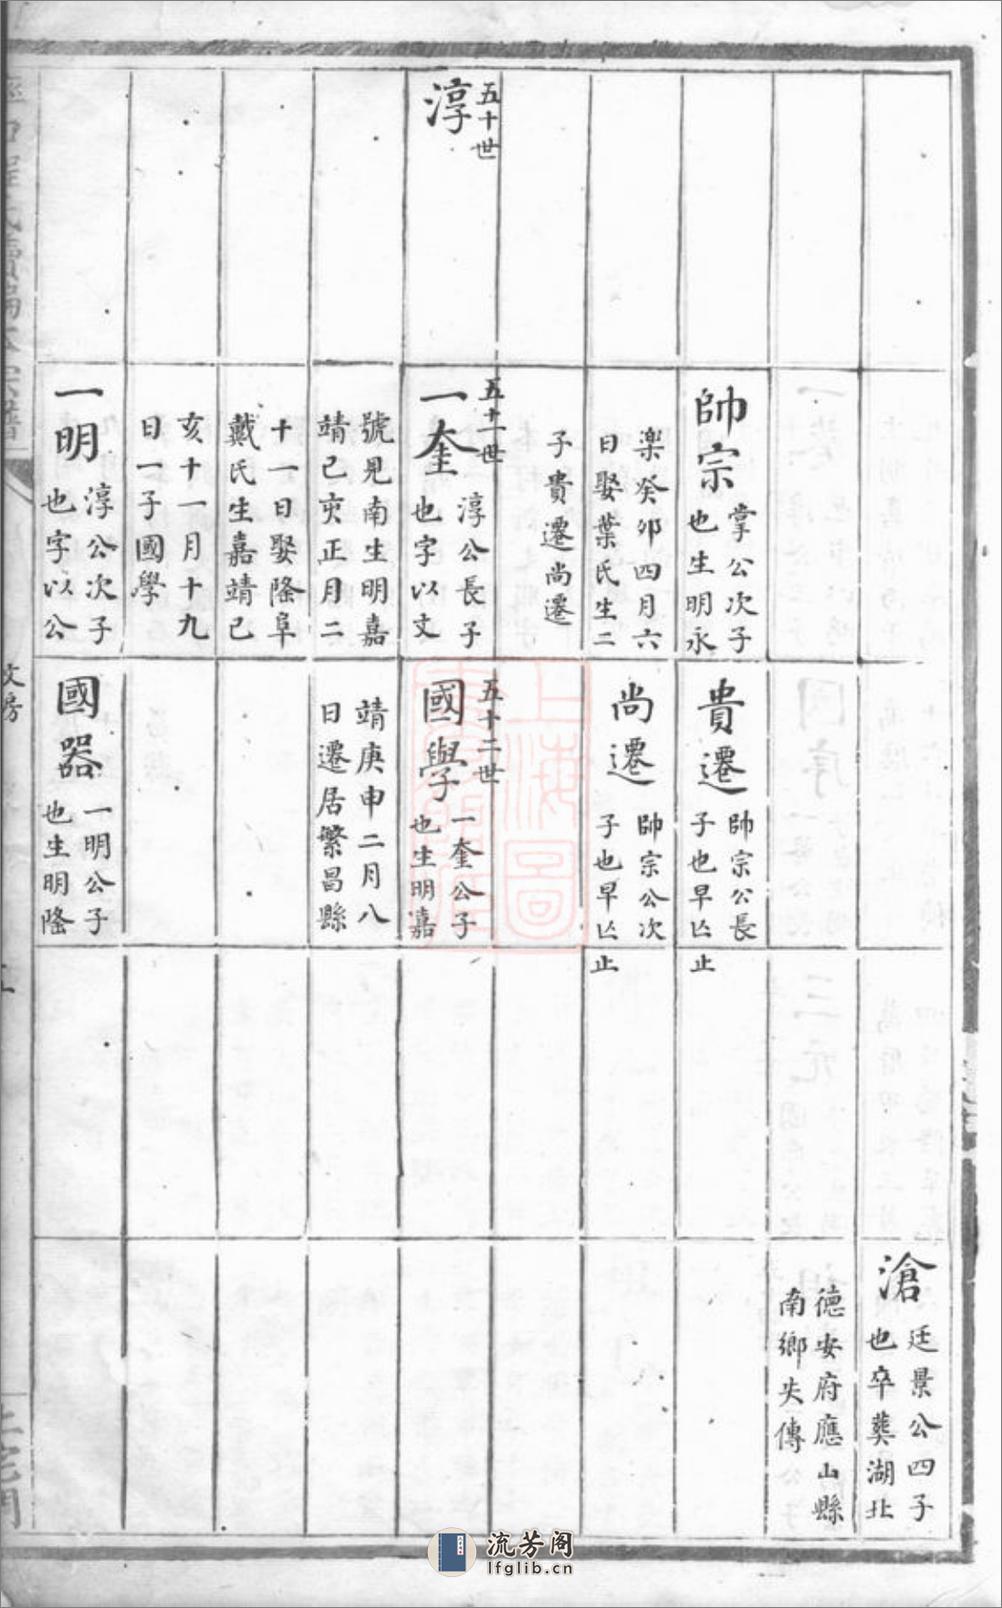 滄
廷景公四子
也卒葬湖北
德安府應山縣
南鄉失傳
帥宗
掌公次子
也生明永
楽癸卯四月六
日娶葉氏生二
子貴遷尚遷
貴遷
帥宗公長
子也早亡止
尚遷
帥宗公次
子也早亡止
五十世
淳
五十一世
一奎
淳公長子
也字以文
號見南生明嘉
靖己亥正月二
十一日娶隆阜
戴氏生嘉靖己
亥十一月十九
日一子國學
五十二世
國學
一奎公子
也生明嘉
靖庚申二月八
日遷居繁昌縣
一明
淳公次子
也字以公
國器
一明公子
也生明隆
文房
流芳阁
lfglib.cn